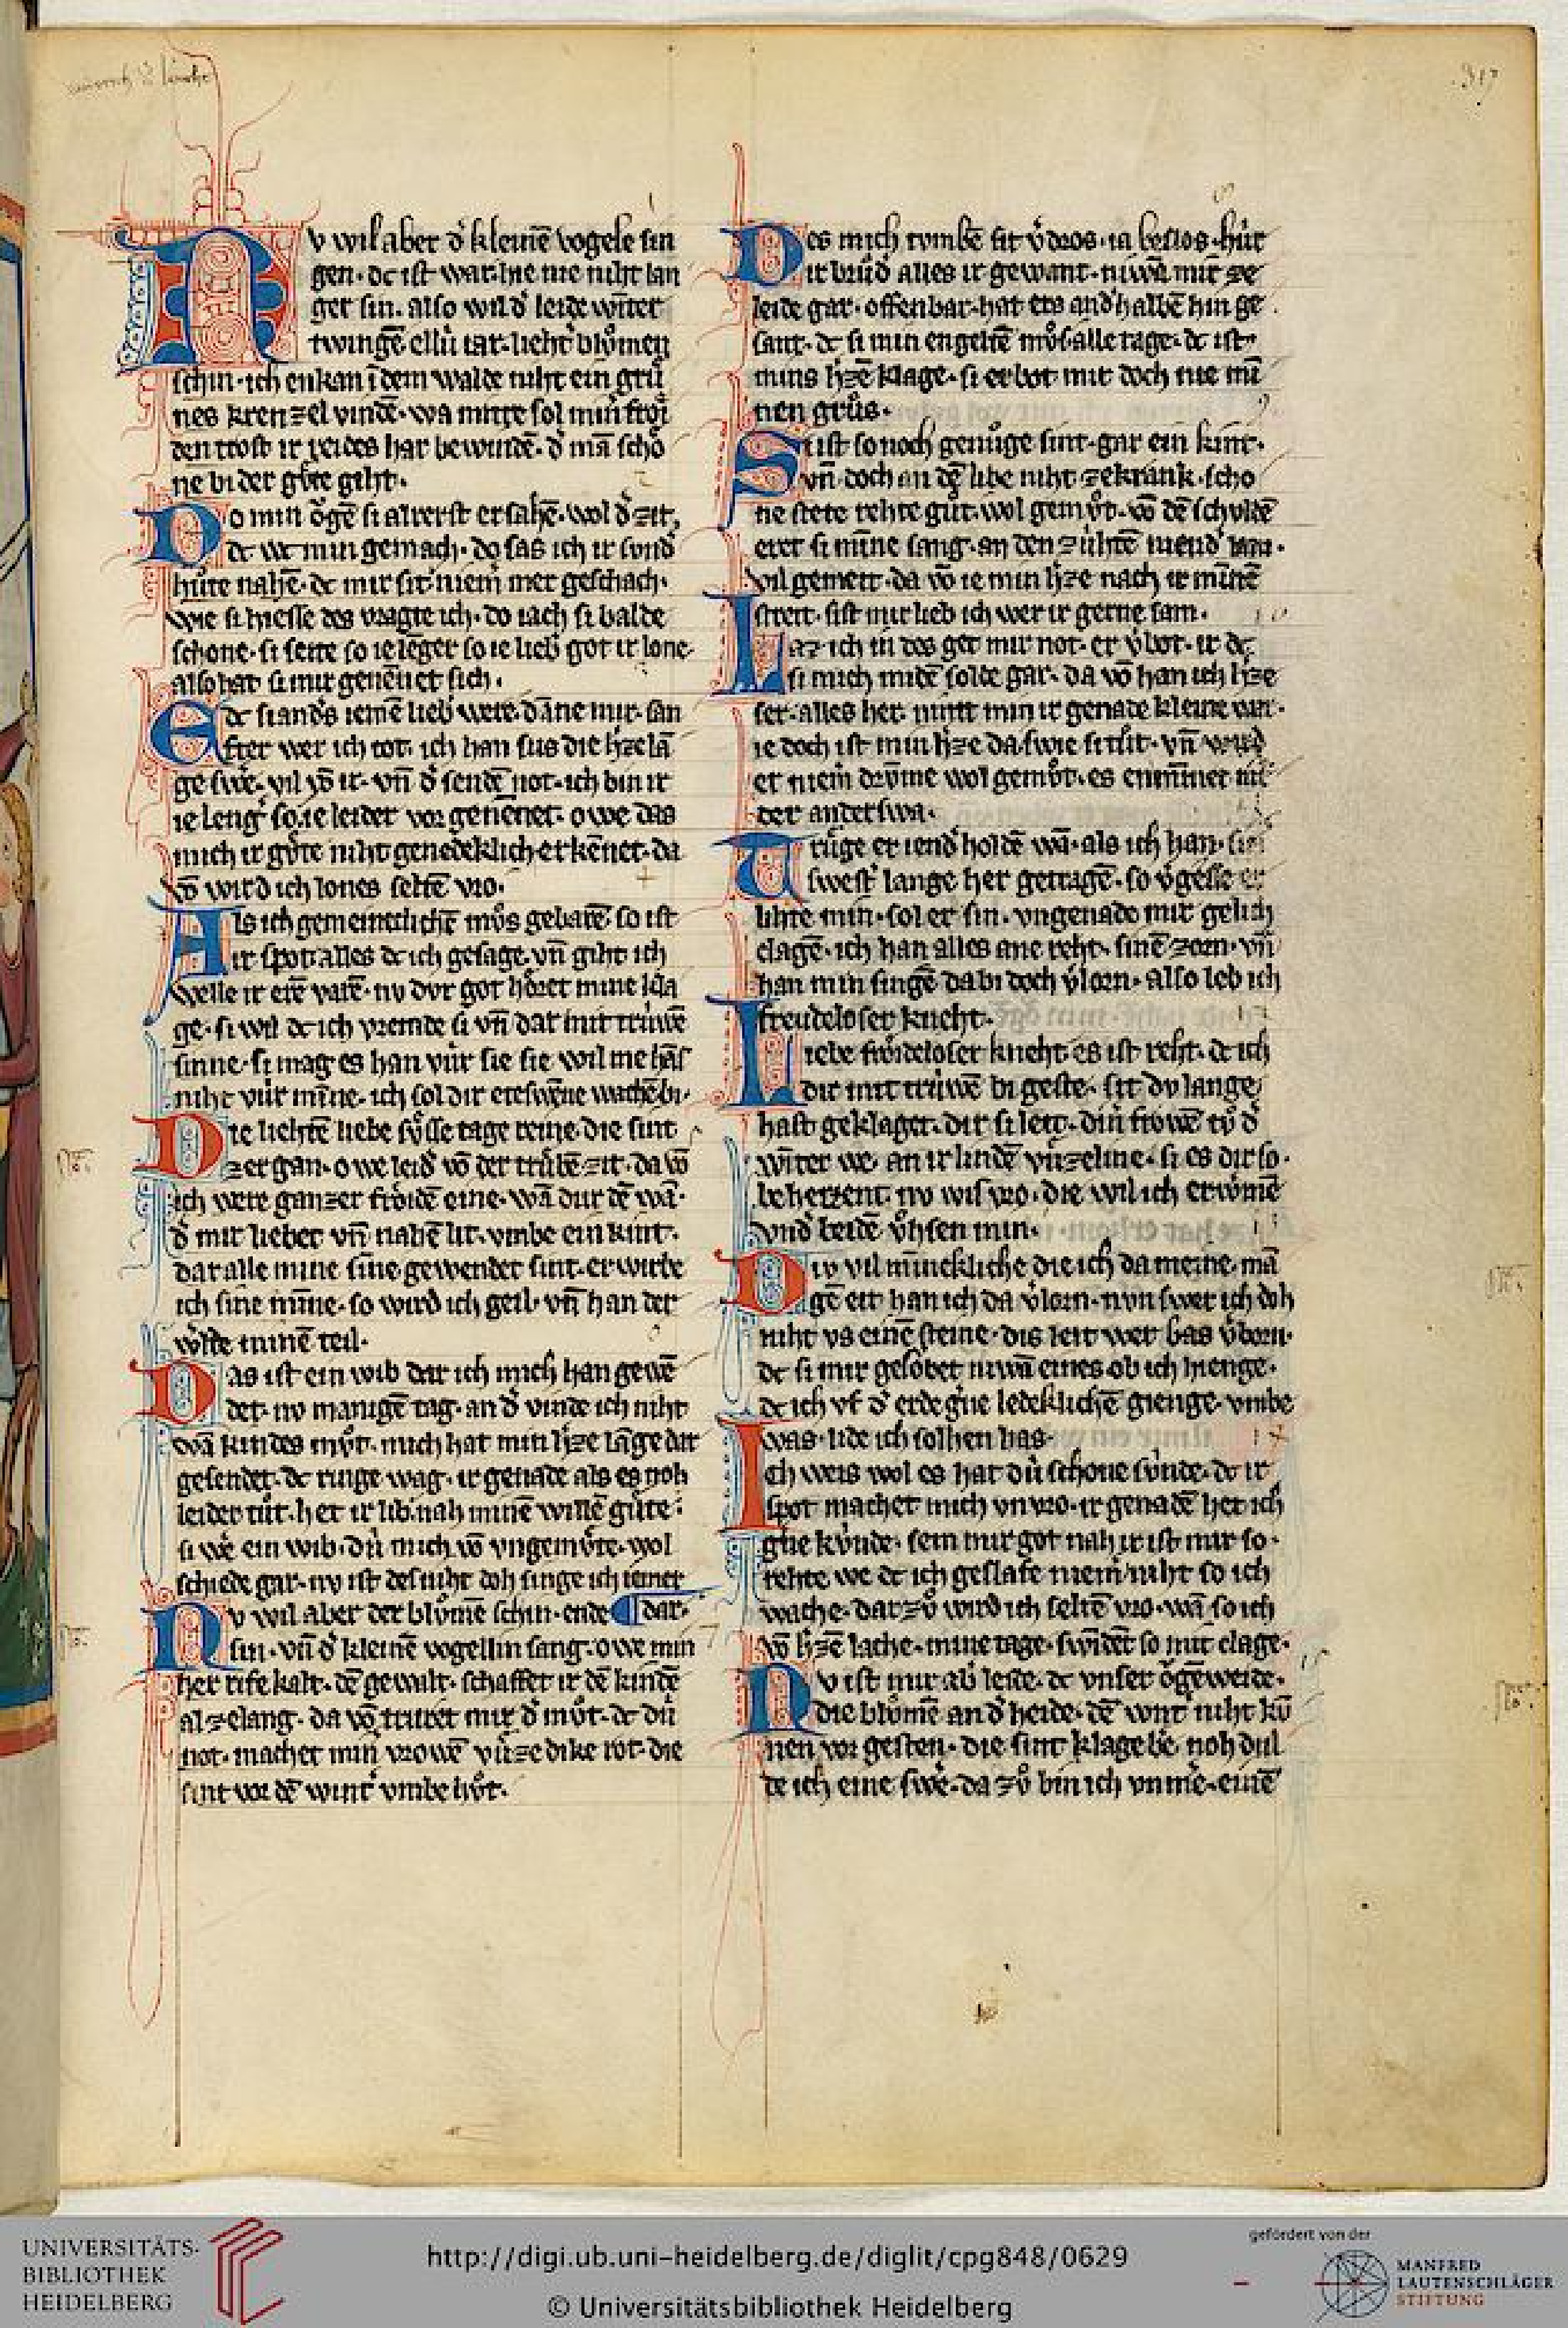 317
v wil aber d᷑ kleinē vogele sin
gen · dc ist war · hie nie niht lan
ger sin · also wil d᷑ leide wīter
twingē ellú iar · lieht᷑ blůmen
schin · ich enkan ī dem walde niht ein grů
nes krenzel vindē · wa mitte sol min frǒi
den trost ir reides har bewindē · d᷑ mā schǒ
ne bi der gůte giht ·
Do min ǒgē si alrerst ersahē · wol d᷑ zit
dc wc min gemach · do sas ich ir sund᷑
hůte nahē · dc mir sit niem̄ mer geschach ·
wie si hiesse des vragte ich · do iach si balde
schone · si seite so ie lēger so ie lieb᷑ got ir lone
also hat si mir genēnet sich ·
E dc si and᷑s iemē lieb᷑ were · dāne mir · san
fter wer ich tot · ich han sus die h᷑ze lā
ge swe᷑ · vil vō ir · vn̄ d᷑ sendē not · ich bin ir
ie leng᷑ so ie leider vor genēnet · owe das
mich ir gůte niht genedeklich erkēnet · da
vō wird ich lones seltē vro ·
Als ich gemeinelichē můs gebarē · so ist
ir spot alles dc ich gesage · vn̄ giht ich
welle ir erē varē · nv dvr got hǒret mine kla
ge · si wil dc ich vremde si vn̄ dar mit trúwē
sinne · si mag es han vúr
niht vúr mīne · ich sol dir
Die liehtē liebe sůsse tage reine · die sint
zergan · owe leid᷑ vō der trůbē zit · da vō
ich were ganzer frǒidē eine · wā dur dē wā ·
d᷑ mir lieber vn̄ nahē lit · vmbe ein kint ·
dar alle mine siñe gewendet sint · erwirbe
ich sine mīne · so wird ich geil · vn̄ han der
w᷑lde minē teil ·
Das ist ein wib dar ich mich han gewē
det · nv manigē tag · an d᷑ vinde ich niht
wā kindes můt · mich hat min h᷑ze lāge dar
gesendet · dc ringe wag · ir genade als es noh
leider tůt · het ir lib nah minē willē gůte
si we᷑ ein wib · dú mich vō vngemůte · wol
schiede gar · nv ist des niht doh singe ich iemer
Nv wil aber der blůmē schin · ende ¶ dar ·
sin · vn̄ d᷑ kleinē vogellin sang · owe min
her rife kalt · dē gewalt · schaffet ir dē kindē
al zelang · da vō truret mir d᷑ můt · dc dú
not · machet min vrowē vúze dike rot · die
sint vor dē wint᷑ vmbehůt ·
Des mich tvmbē sit v᷑dros · ia beslos · húr
ir brůd᷑ alles ir gewant · niwā mir ze
leide gar · offenbar · hat ers and᷑halbē hin ge
sant · dc si min engeltē můs alle tage · dc ist
mins h᷑zē klage · si erbot mir doch nie mī
nen grůs ·
Si ist so noch genůge sint · gar ein kint ·
vn̄ doch an dē libe niht zekrank · scho
ne stete rehte gůt · wol gemůt · vō dē schuldē
eret si mine sang · an den zúhtē
vil gemeit · da vō ie min h᷑ze nach ir mīnē
streit · sist mir lieb ich wer ir gerne sam ·
Laz ich in des get mir not · er v᷑bot · ir dc
si mich midē solde gar · da vō han ich h᷑ze
ser · alles her · nimt min ir genade kleine war ·
ie doch ist min h᷑ze da · swie si tůt · vn̄ wird
et niem̄ drvme wol gemůt · es enmīnet ni
der anderswa ·
Trůge er iend᷑ holdē wā · als ich han
swest᷑ lange her getragē · so v᷑gesse er
lihte min · sol er sin · vngenade mir gelich
clagē · ich han alles ane reht · sinē zorn · vn̄
han min singē dabi doch v᷑lorn · also leb ich
freudeloser kneht ·
Liebe frǒideloser kneht es ist reht · dc ich
dir mit trúwē bi geste · sit dv lange
hast geklaget · dir si leit · din frowē tv̊ d᷑
wīter we · an ir lindē vúzeline · si es dir so ·
nv wis vro · die wil ich
vnd᷑ beidē ůhsen min ·
Dv vil mīnekliche die ich da meine · mā
gē eit han ich da v᷑lorn · nvn swer ich doh
niht vs einē steine · dis leit wer bas v᷑born ·
dc si mir gelobet niwā eines ob ich hienge ·
dc ich vf d᷑ erde gn᷑e ledeklichē gienge · vmbe
was · lide ich solhen has ·
Ich weis wol es hat dú schone súnde · dc ir
spot machet mich vnvro · ir genadē het ich
gn᷑e kúnde · sem mir got nah ir ist mir so ·
rehte we dc ich geslafe niem̄ niht so ich
wache · dar zů wird ich seltē vro · wā so ich
vō h᷑zē lache · mine tage · swīdēt so mit clage ·
Nv ist mir ab᷑ leide · dc vnser ǒgēweide ·
die blůmē an d᷑ heide · dē wint᷑ niht kv̄
nen vor gesten · die sint klagebe᷑ · noh dul
de ich eine swe᷑ · da zů bin ich vnme᷑ · einē
UNIVERSITÄTS-
BIBLIOTHEK
HEIDELBERG
http://digi.ub.uni-heidelberg.de/diglit/cpg848/0629
© Universitätsbibliothek Heidelberg
gefördert von der
MANFRED
LAUTENSCHLÄGER
STIFTUNG